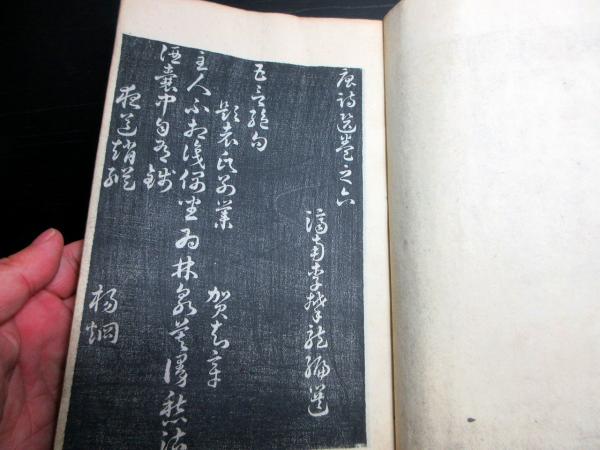 唐詩選巻之六
済南李攀龍編選
五言絶句
題袁氏別業
賀知章
主人不相識偶坐為林泉莫謾愁沽
酒嚢中自有銭
夜送趙縦
楊炯